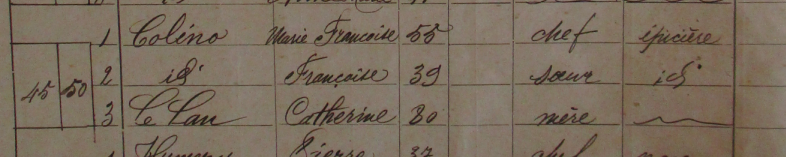 1 Colino Marie Françoise 55 chef épicière
45 50 2 id° Françoise 39 sœur id°
3 Le Lan Catherine 80 mère
Pierre 37 chef